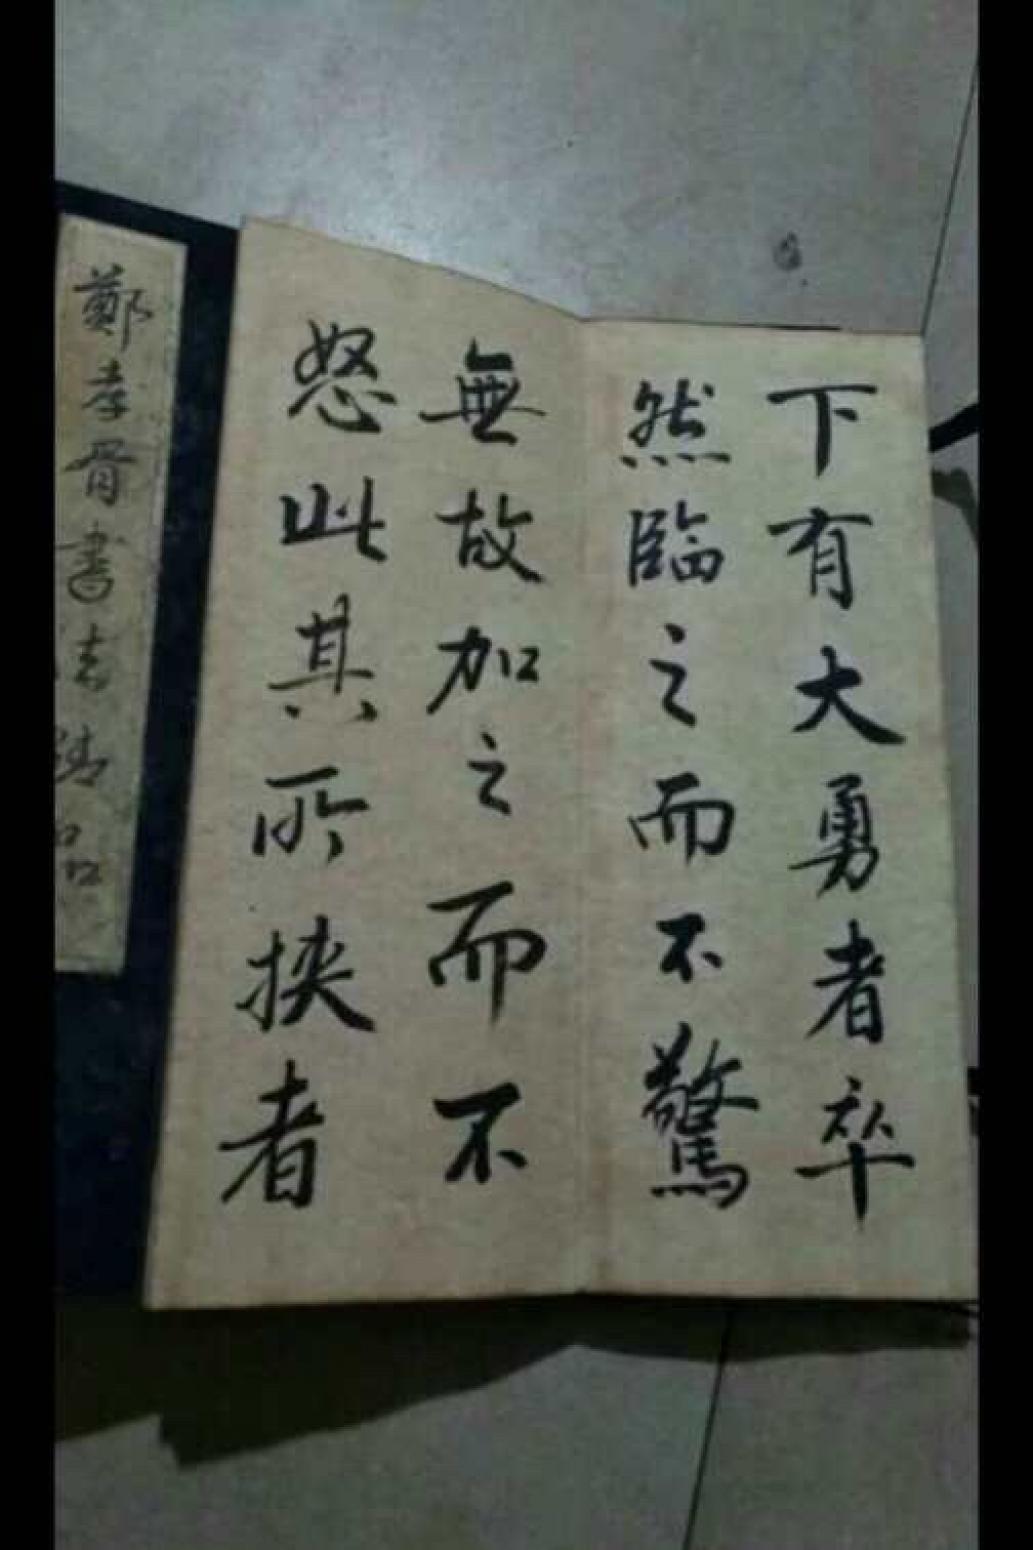 下有大勇者卒
然臨之而不驚
無故加之而不
怒此其所挾者
鄭孝胥書法精品